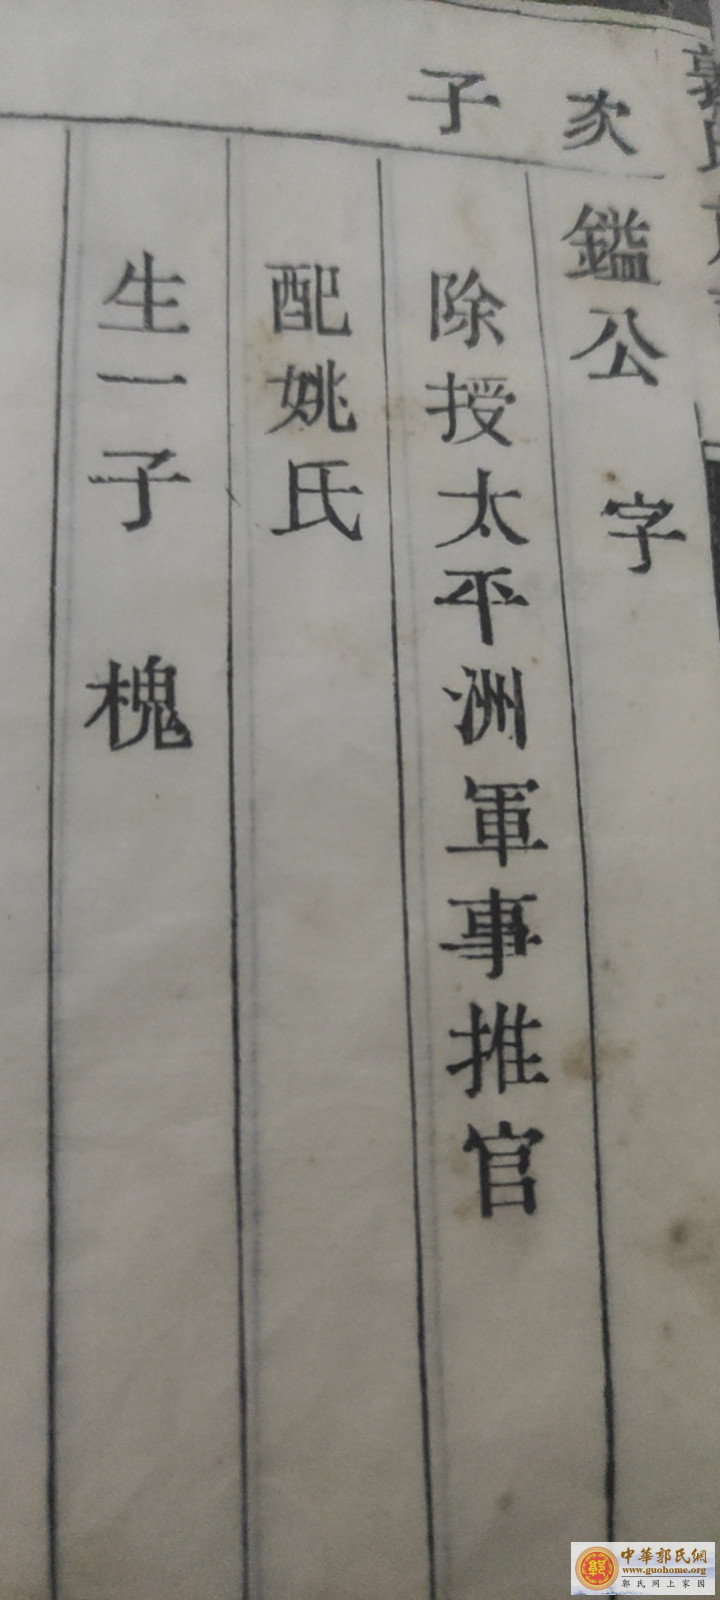 郭氏
次
子
鎰公 字
除授太平洲軍事推官
配姚氏
生一子 槐
中華郭氏網
www.guohome.org
郭氏网上家园